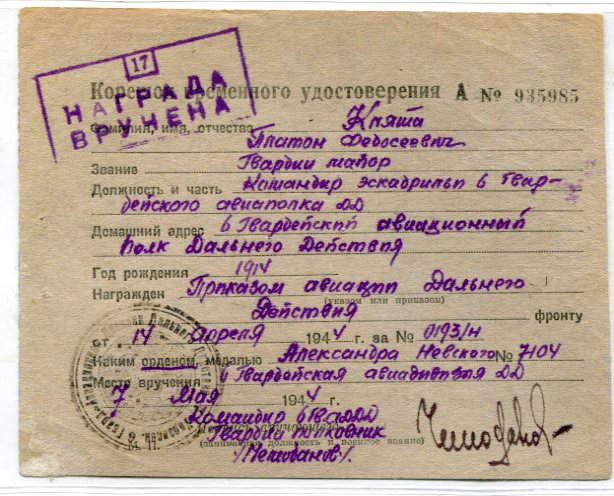 17
НАГРАДА
ВРУЧЕНА
Корешок временного удостоверения А № 935985
Фамилия, имя, отчество Кпята
Платон Федосеевич
Звание Гвардии майор
Должность и часть Командир эскадрильи 6 Гвар-
дейского авиаполка ДД
Домашний адрес 6 Гвардейский авиационный
полк Дальнего Действия
Год рождения 1914
Награжден Приказом авиации Дальнего
(указом или приказом)
Действия фронту
от 14 апреля 1944 г. за № 0193/н
Каким орденом, медалью Александра Невского № 7104
Место вручения 6 Гвардейская авиадивизия ДД
7 Мая 1944 г.
Командир 6 Гв.
Гвардии полковник
(занимаемая должность и военное звание)
М. П. /Чемоданов/.
Чемоданов